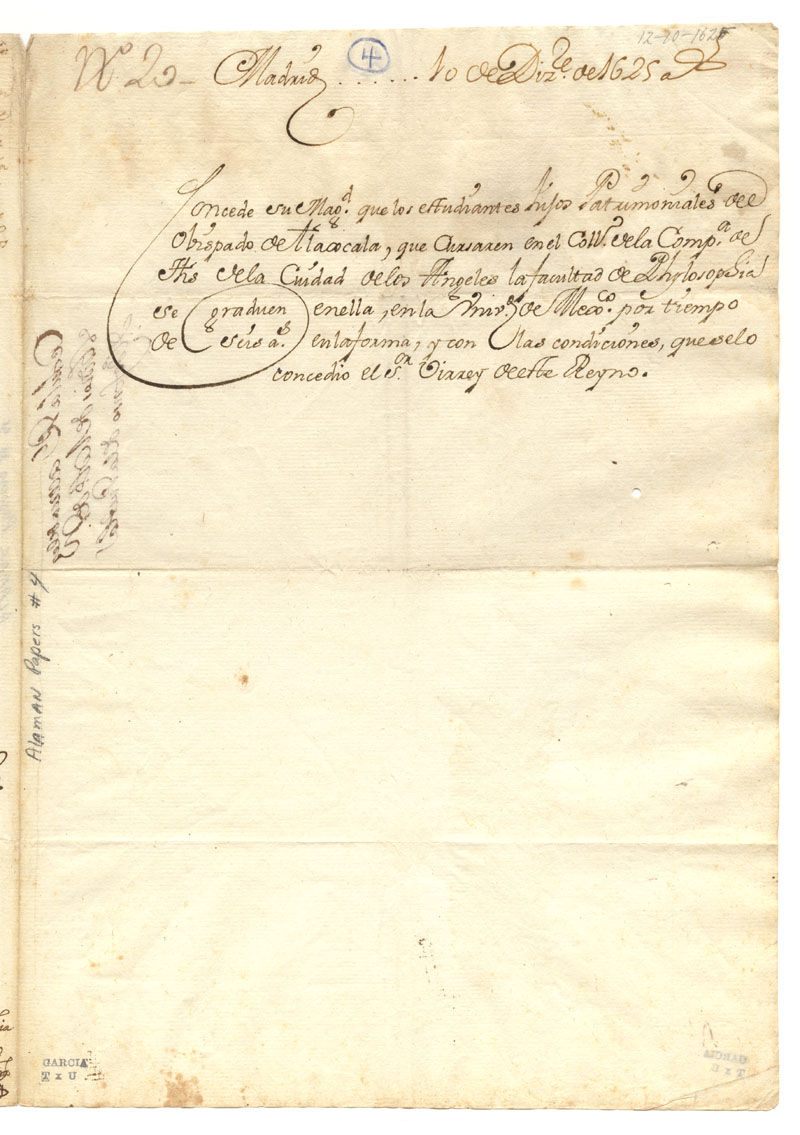 12-10-1625
Nº 2º Madrid ...... 10 de Dizᵉ. de 1625 aˢ
4
Concede su Magᵈ. que los estudiantes hijos Patrimoniales del
Obispado de tlaxcala, que Cursaren en el Collº. de la Compᵃ. de
Jhs de la Cuidad de los Angeles la facultad de Phylosophia
se graduen en ella, en la Univᵈ. de Mexᶜᵒ. por tiempo
de seis aˢ. en la forma, y con las condiciones, que se lo
concedio el Sᵒʳ. Virrey de este Reyno.
Alaman Papers # 4
GARCIA
T x U